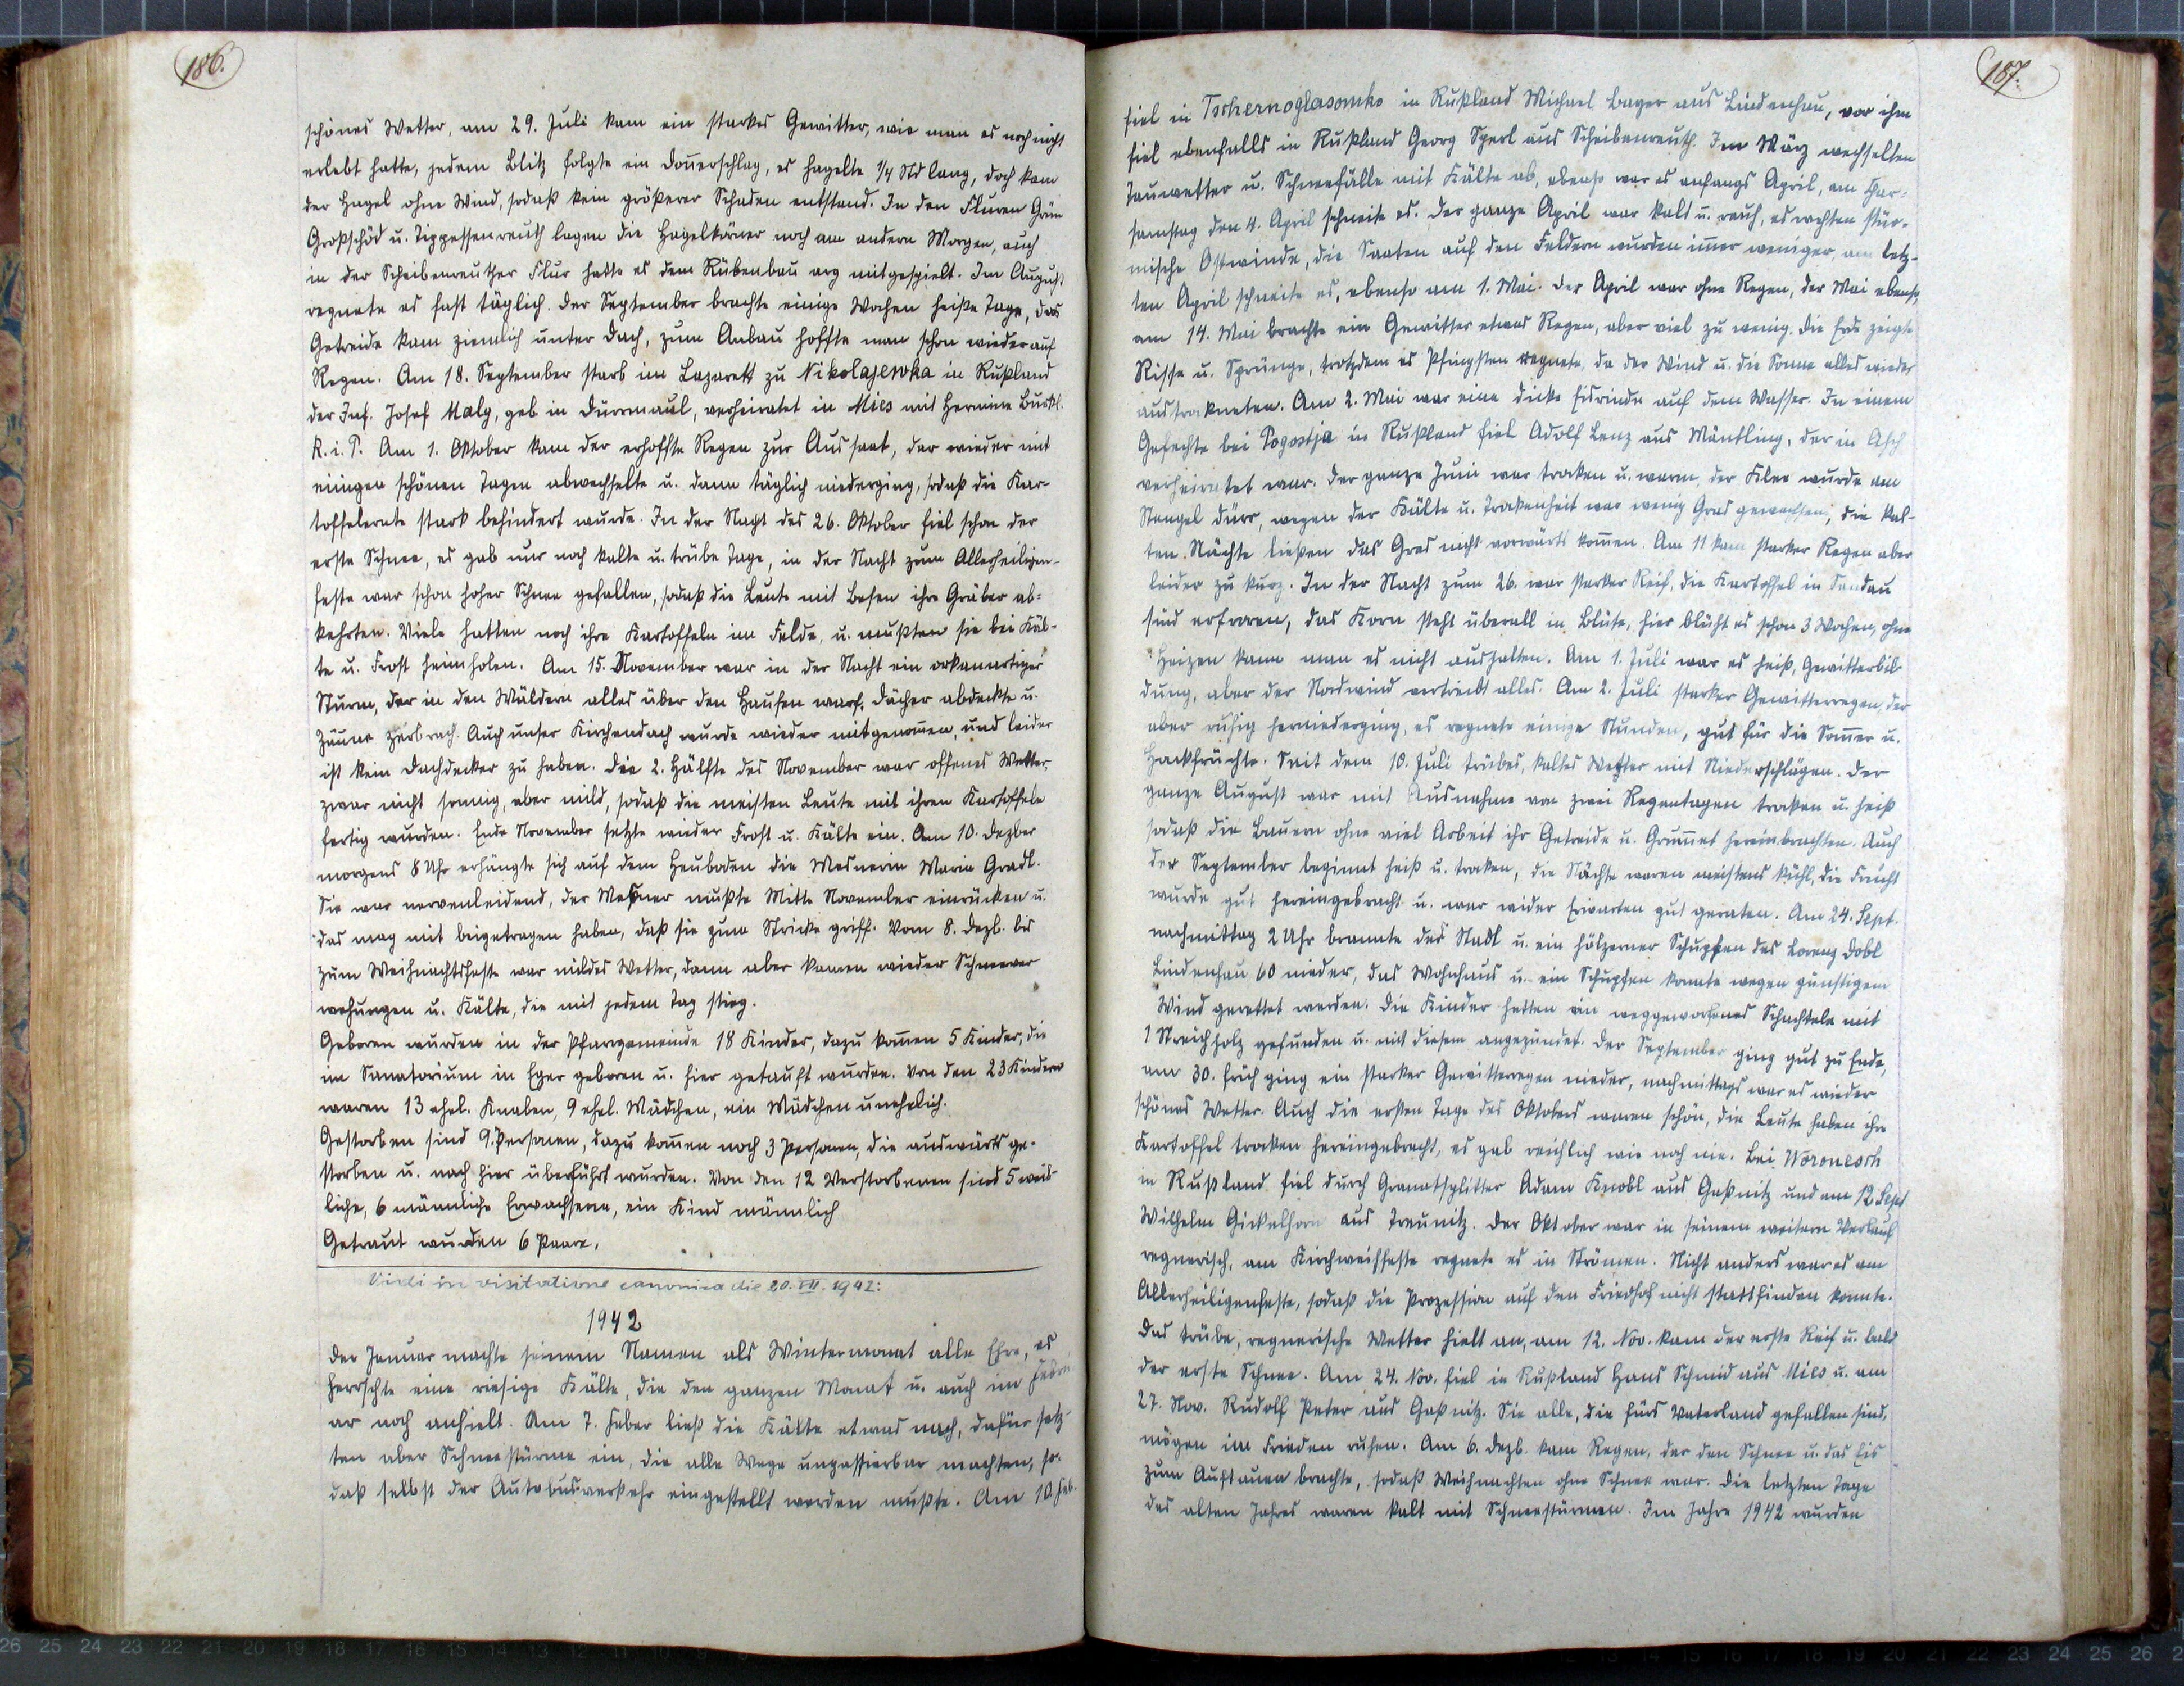 186.
schönes Wetter, am 29. Juli kam ein starkes Gewitter, wie man es noch nicht
erlebt hatte, jedem Blitz folgte ein Donnerschlag, es hagelte 1/4 Std lang, doch kam
der Hagel ohne Wind, sodaß kein größerer Schaden entstand. In den Fluren Grün
Großschöd u. Tippessenreuth lagen die Hagelkörner noch am andern Morgen, auch
in der Scheibenreuther Flur hatte es dem Rübenbau arg mitgespielt. Im August
regnete es fast täglich. Der September brachte einige Wochen heiße Tage, das
Getreide kam ziemlich unter Dach, zum Anbau hoffte man schon wieder auf
Regen. Am 18. September starb im Lazarett zu Nikolajewka in Rußland
der Inf. Josef Maly, geb in Dürrmaul, verheiratet in Mies mit Hermine Burkl.
R.i.P. Am 1. Oktober kam der erhoffte Regen zur Aussaat, der wieder mit
einigen schönen Tagen abwechselte u. dann täglich niederging, sodaß die Kar-
toffelernte stark behindert wurde. In der Nacht des 26. Oktober fiel schon der
erste Schnee, es gab nur noch kalte u. trübe Tage, in der Nacht zum Allerheiligen-
feste war schon hoher Schnee gefallen, sodaß die Leute mit Besen ihre Gräber ab-
kehrten. Viele hatten noch ihre Kartoffeln im Felde, u. mußten sie bei Käl-
te u. Frost heimholen. Am 15. November war in der Nacht ein orkanartiger
Sturm, der in den Wäldern alles über den Haufen warf, Dächer abdeckte u.
Zäune zerbrach. Auch unser Kirchendach wurde wieder mitgenommen, und leider
ist kein Dachdecker zu haben. Die 2. Hälfte des November war offenes Wetter,
zwar nicht sonnig, aber mild, sodaß die meisten Leute mit ihren Kartoffeln
fertig wurden. Ende November setzte wieder Frost u. Kälte ein. Am 10. Dezber
morgens 8 Uhr erhängte sich auf dem Heuboden die Mesnerin Maria Gradl.
Sie war nervenleidend, der Meßner mußte Mitte November einrücken u.
das mag mit beigetragen haben, daß sie zum Stricke griff. Vom 8. Dezb. bis
zum Weihnachtsfeste war mildes Wetter, dann aber kamen wieder Schneever
wehungen u. Kälte, die mit jedem Tag stieg.
Geboren wurden in der Pfarrgemeinde 18 Kinder, dazu kommen 5 Kinder, die
im Sanatorium in Eger geboren u. hier getauft wurden. Von den 23 Kindern
waren 13 ehel. Knaben, 9 ehel. Mädchen, ein Mädchen unehelich.
Gestorben sind 9 Personen, dazu kommen noch 3 Personen, die auswärts ge-
storben u. nach hier überführt wurden. Von den 12 Verstorbenen sind 5 weib-
liche, 6 männliche Erwachsene, ein Kind männlich
Getraut wurden 6 Paare.
Vidi in visitatione canonica die 20. VII. 1942:
1942
Der Januar machte seinem Namen als Wintermonat alle Ehre, es
herrschte eine riesige Kälte, die den ganzen Monat u. auch im Febru
ar noch anhielt. Am 7. Feber ließ die Kälte etwas nach, dafür setz-
ten aber Schneestürme ein, die alle Wege unpassierbar machten, so-
daß selbst der Autobusverkehr eingestellt werden mußte. Am 10. Feb.
187.
fiel in Tschernoglasomko in Rußland Michael Bayer aus Lindenhau, vor ihm
fiel ebenfalls in Rußland Georg Sperl aus Scheibenreuth. Im März wechselten
Tauwetter u. Schneefälle mit Kälte ab, ebenso war es anfangs April, am Kar-
samstag den 4. April schneite es. Der ganze April war kalt u. rauh, es wehten stür-
mische Ostwinde, die Saaten auf den Feldern wurden immer weniger, am letz-
ten April schneite es, ebenso am 1. Mai. Der April war ohne Regen, der Mai ebenso
am 14. Mai brachte ein Gewitter etwas Regen, aber viel zu wenig. Die Erde zeigte
Risse u. Sprünge, trotzdem es Pfingsten regnete, da der Wind u. die Sonne alles wieder
austrockneten. Am 2. Mai war eine dicke Eisrinde auf dem Wasser. In einem
Gefechte bei Pogostja in Rußland fiel Adolf Lenz aus Mäntling, der in Asch
verheiratet war. Der ganze Juni war trocken u. warm, der Klee wurde am
Stengel dürr, wegen der Kälte u. Trockenheit war wenig Gras gewachsen, die kal-
ten Nächte ließen das Gras nicht vorwärts kommen. Am 11 kam starker Regen aber
leider zu kurz. In der Nacht zum 26. war starker Reif, die Kartoffel in Sandau
sind erfroren, das Korn steht überall in Blüte, hier blüht es schon 3 Wochen, ohne
Heizen kann man es nicht aushalten. Am 1. Juli war es heiß, Gewitterbil-
dung, aber der Nordwind vertreibt alles. Am 2. Juli starker Gewitterregen, der
aber ruhig herniederging, es regnete einige Stunden, gut für die Sommer u.
Hackfrüchte. Seit dem 10. Juli trübes, kaltes Wetter mit Niederschlägen. Der
ganze August war mit Ausnahme von zwei Regentagen trocken u. heiß
sodaß die Bauern ohne viel Arbeit ihr Getreide u. Grummet hereinbrachten. Auch
der September beginnt heiß u. trocken, die Nächte waren meistens kühl, die Frucht
wurde gut hereingebracht u. war wider Erwarten gut geraten. Am 24. Sept.
nachmittag 2 Uhr brannte der Stadl u. ein hölzerner Schupfen des Lorenz Dobl
Lindenhau 60 nieder, das Wohnhaus u. ein Schupfen konnte wegen günstigem
Wind gerettet werden. Die Kinder hatten ein weggeworfenes Schachtele mit
1 Streichholz gefunden u. mit diesem angezündet. Der September ging gut zu Ende,
am 30. früh ging ein starker Gewitterregen nieder, nachmittags war es wieder
schönes Wetter. Auch die ersten Tage des Oktobers waren schön, die Leute haben ihre
Kartoffel trocken hereingebracht, es gab reichlich wie noch nie. Bei Woronesch
in Rußland fiel durch Granatsplitter Adam Knobl aus Gaßnitz und am 12. Sept
Wilhelm Gickelhorn aus Treunitz. Der Oktober war in seinem weitern Verlauf
regnerisch, am Kirchweihfeste regnete es in Strömen. Nicht anders war es am
Allerheiligenfeste, sodaß die Prozession auf den Friedhof nicht stattfinden konnte.
Das trübe, regnerische Wetter hielt an, am 12. Nov. kam der erste Reif u. bald
der erste Schnee. Am 24. Nov. fiel in Rußland Hans Schmid aus Mies u. am
27. Nov. Rudolf Peter aus Gaßnitz. Sie alle, die fürs Vaterland gefallen sind,
mögen im Frieden ruhen. Am 6. Dezb. kam Regen, der den Schnee u. das Eis
zum Auftauen brachte, sodaß Weihnachten ohne Schnee war. Die letzten Tage
des alten Jahres waren kalt mit Schneestürmen. Im Jahre 1942 wurden